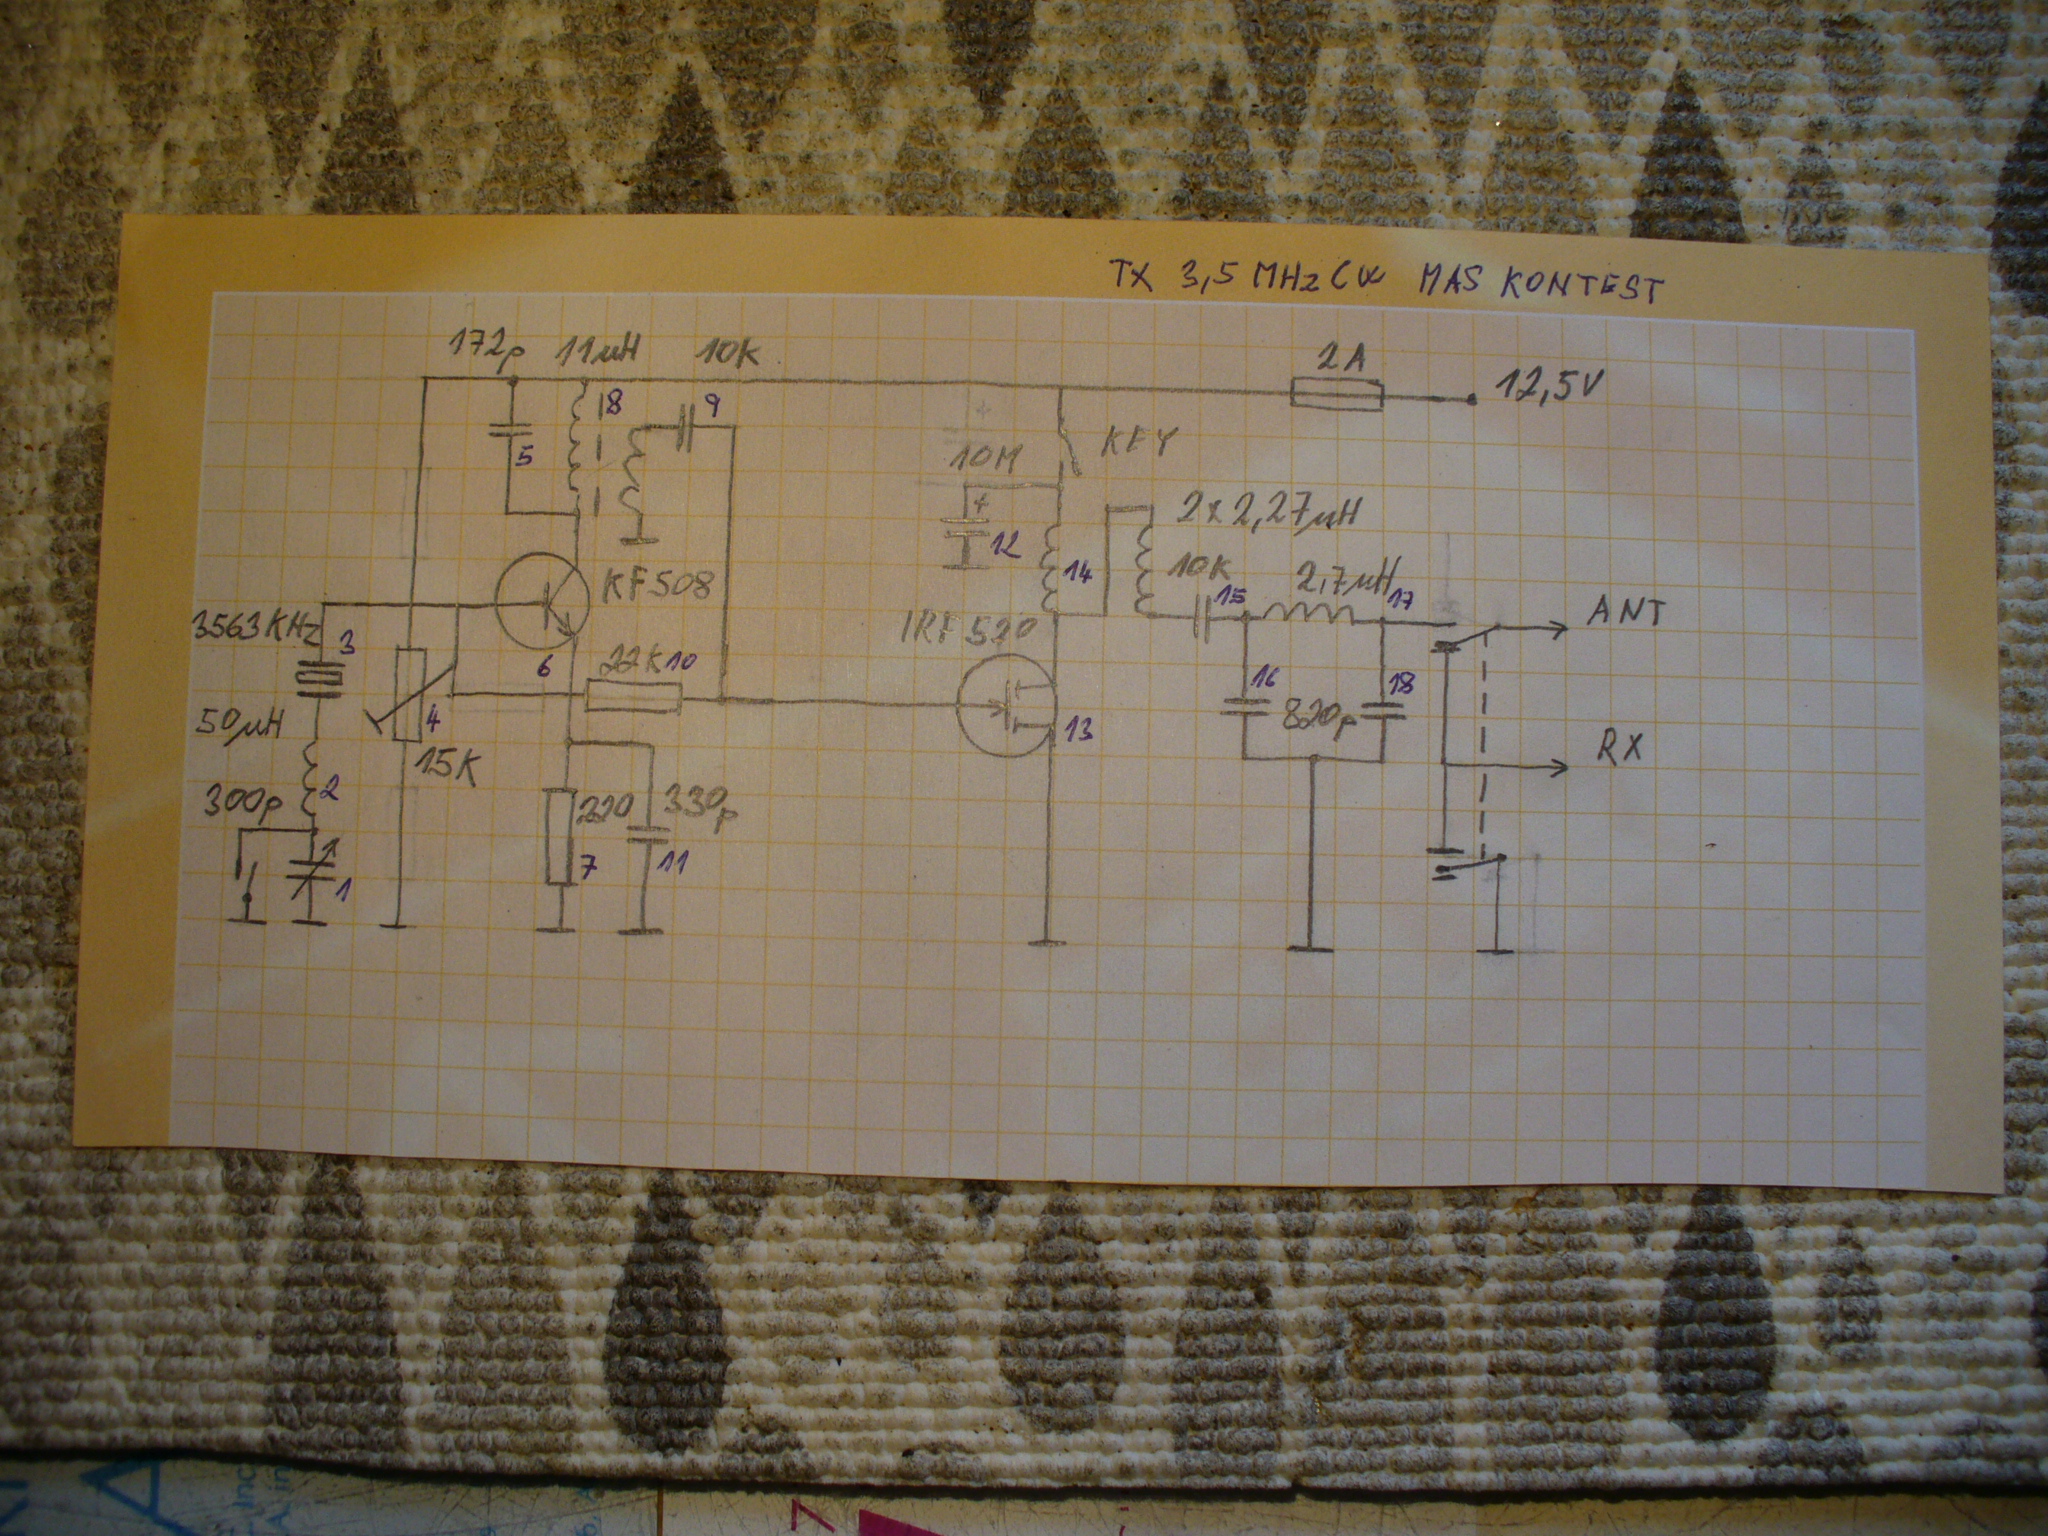 TX 3,5 MHz CW MAS KONTEST
172p 11µH 10K
2A
12,5V
8 9
5
KEY
10M
+
12
2x2,27µH
14
10K
15
2,7µH
17
ANT
KF508
3563KHz
3
IRF520
6
22K 10
16
18
820p
13
50µH
4
15K
RX
2
300p
220
330p
7
11
1